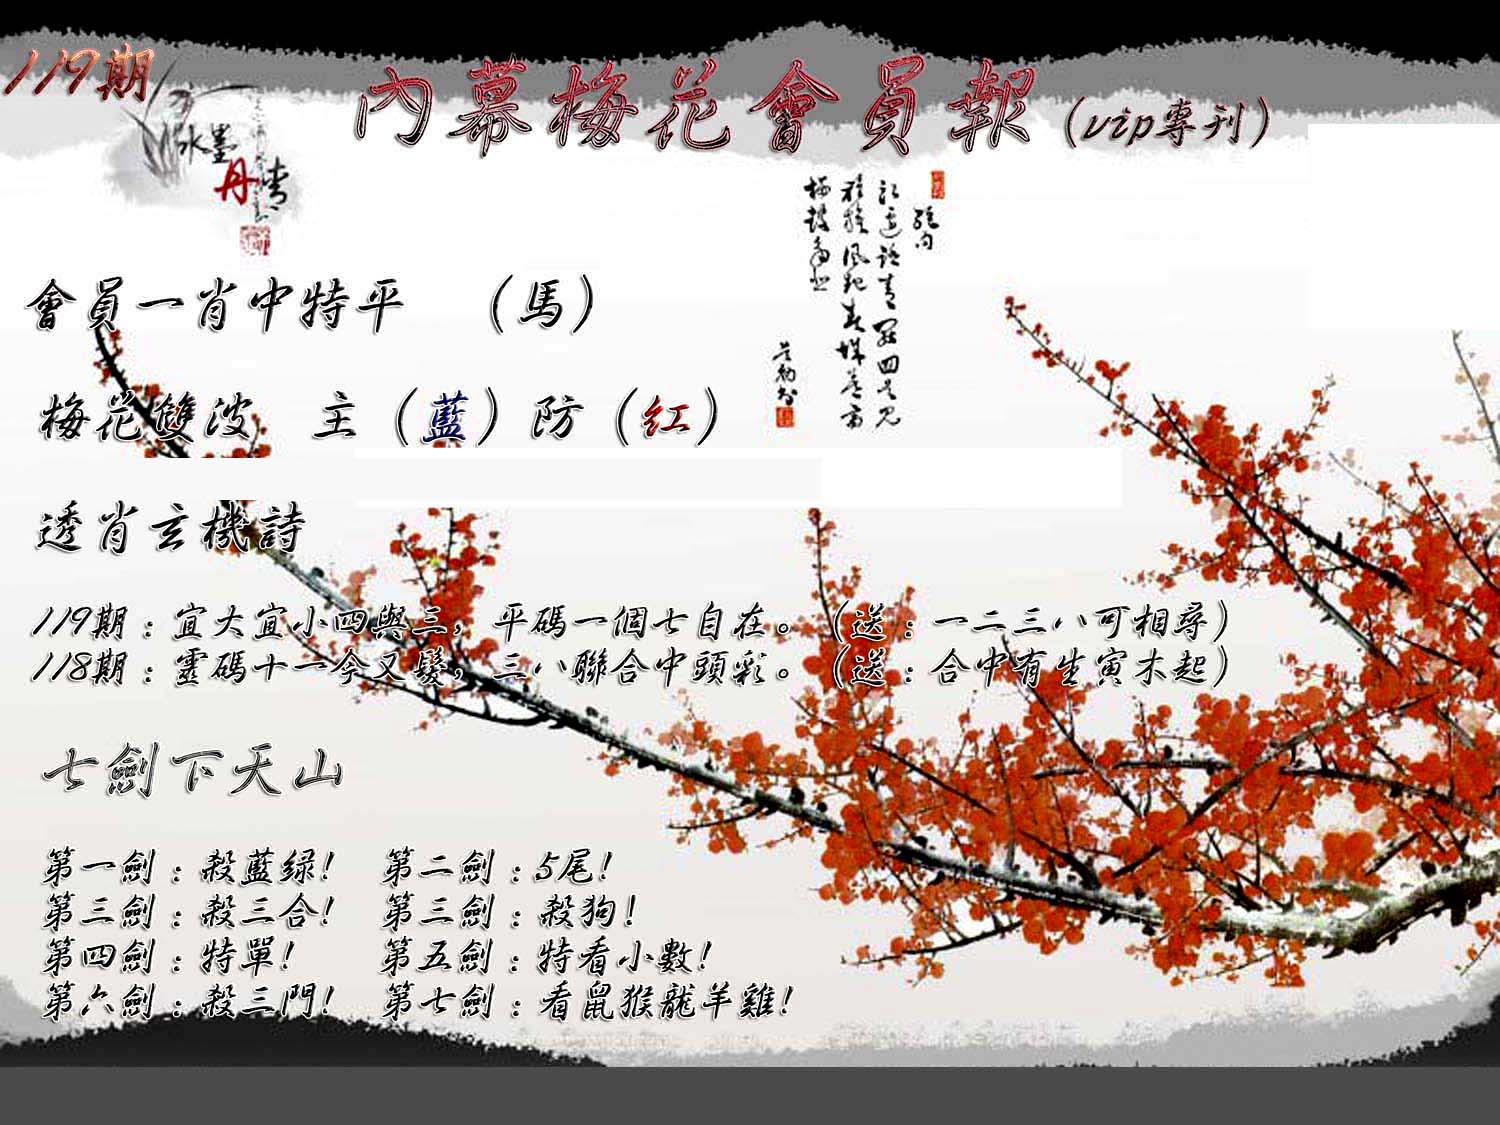 119期
內幕梅花會員報（vip專刊）
水墨
丹青
會員一肖中特平　（馬）
梅花雙波　主（藍）防（紅）
透肖玄機詩
119期：宜大宜小四與三，平碼一個七自在。（送：一二三八可相尋）
118期：靈碼十一今又發，三八聯合中頭彩。（送：合中有生寅木起）
七劍下天山
第一劍：殺藍绿！　第二劍：5尾！
第三劍：殺三合！　第三劍：殺狗！
第四劍：特單！　第五劍：特看小數！
第六劍：殺三門！　第七劍：看鼠猴龍羊雞！